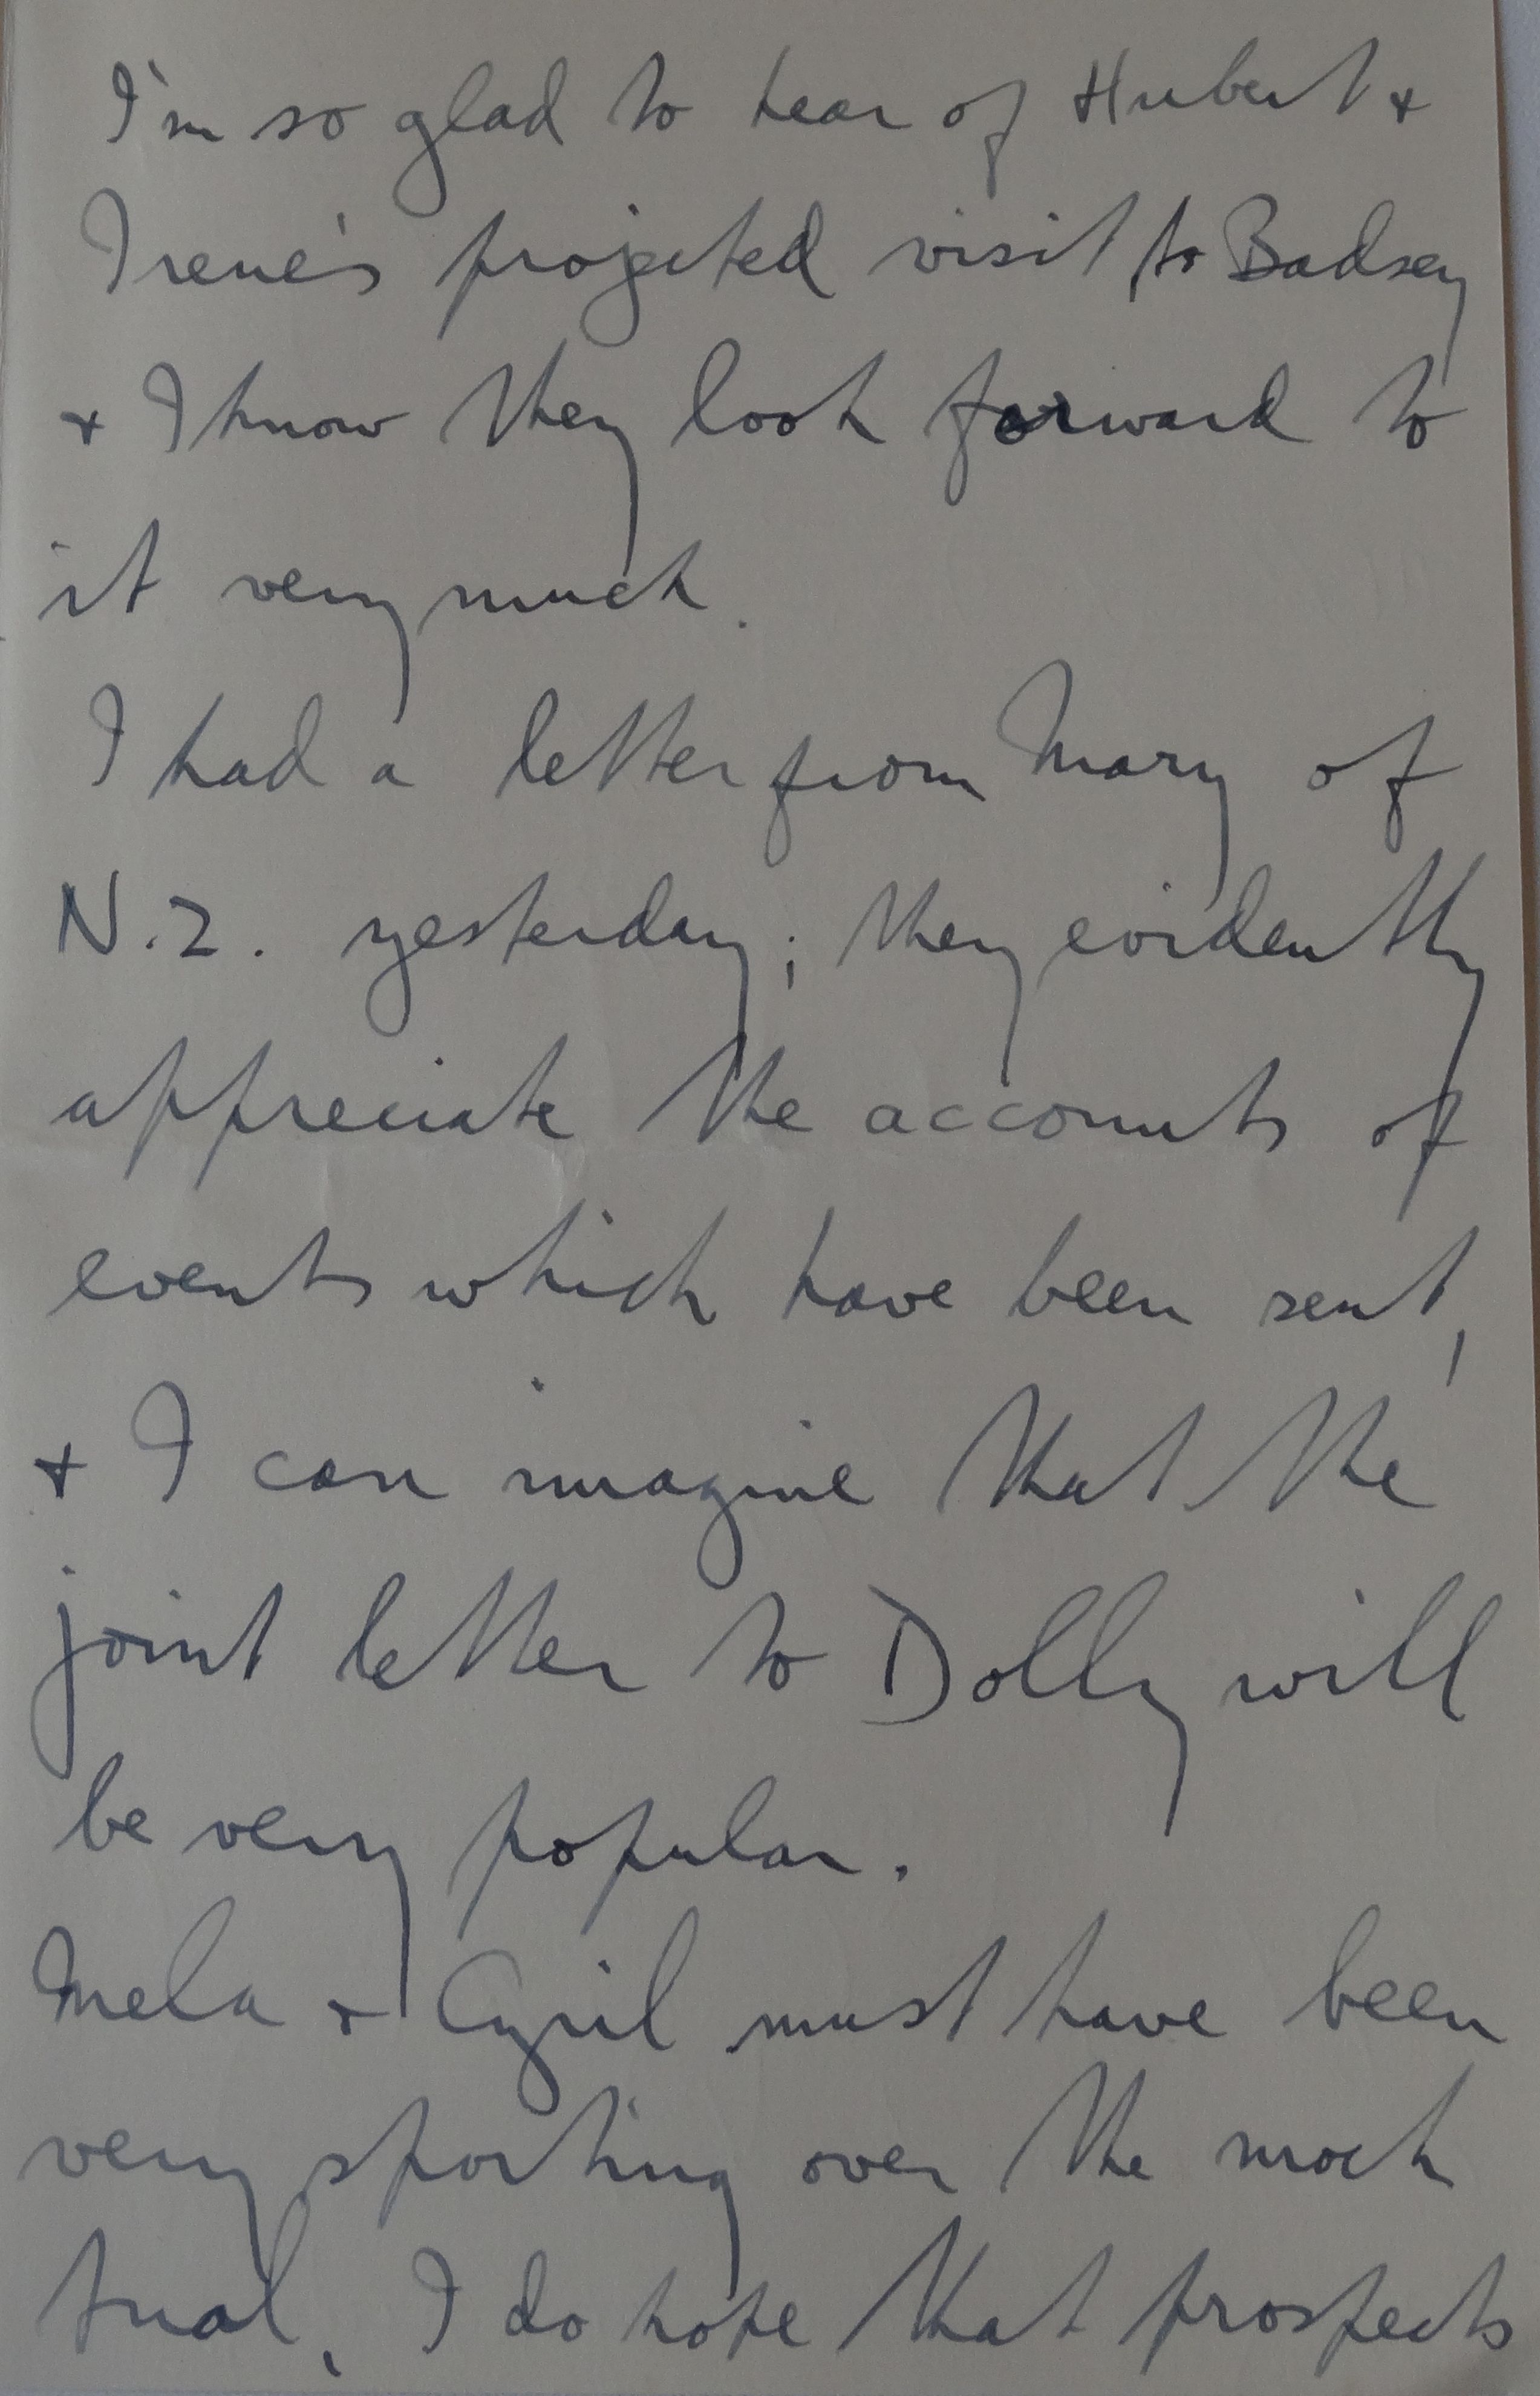 I'm so glad to hear of Hubert +
Irene's projected visit to Badsey
+ I know they look forward to
it very much.
I had a letter from Mary of
N.Z. yesterday; they evidently
appreciate the accounts of
events which have been sent,
+ I can imagine that the
joint letter to Dolly will
be very popular.
Mela + Cyril must have been
very sporting over the mock
trial. I do hope that prospects